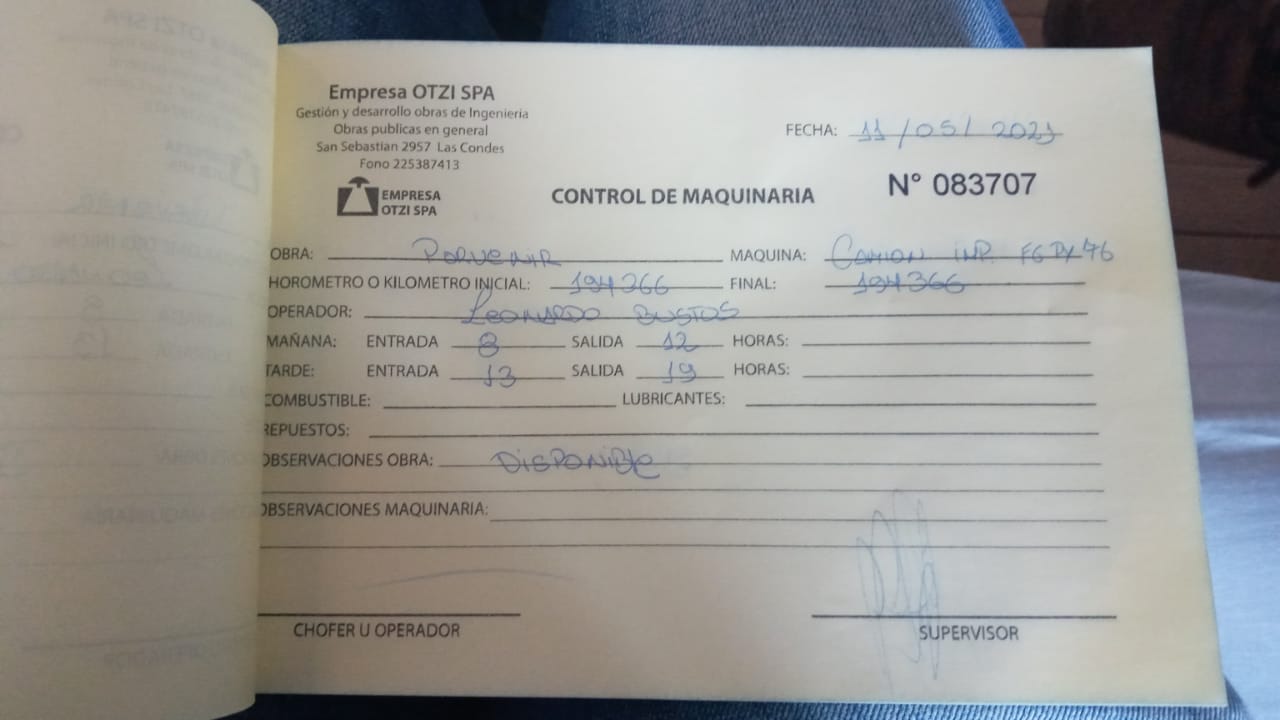 Empresa OTZI SPA
Gestión y desarrollo obras de Ingenieria
Obras publicas en general
San Sebastian 2957 Las Condes
Fono 225387413
EMPRESA
OTZI SPA
FECHA: 11/05/2021
CONTROL DE MAQUINARIA N° 083707
OBRA: PORVENIR MAQUINA: CAMION IMP. FGDX76
HOROMETRO O KILOMETRO INICIAL: 194366 FINAL: 194366
OPERADOR: LEONARDO BUSTOS
MAÑANA: ENTRADA 8 SALIDA 12 HORAS:
TARDE: ENTRADA 13 SALIDA 19 HORAS:
COMBUSTIBLE: LUBRICANTES:
REPUESTOS:
OBSERVACIONES OBRA: DISPONIBLE
OBSERVACIONES MAQUINARIA:
CHOFER U OPERADOR SUPERVISOR